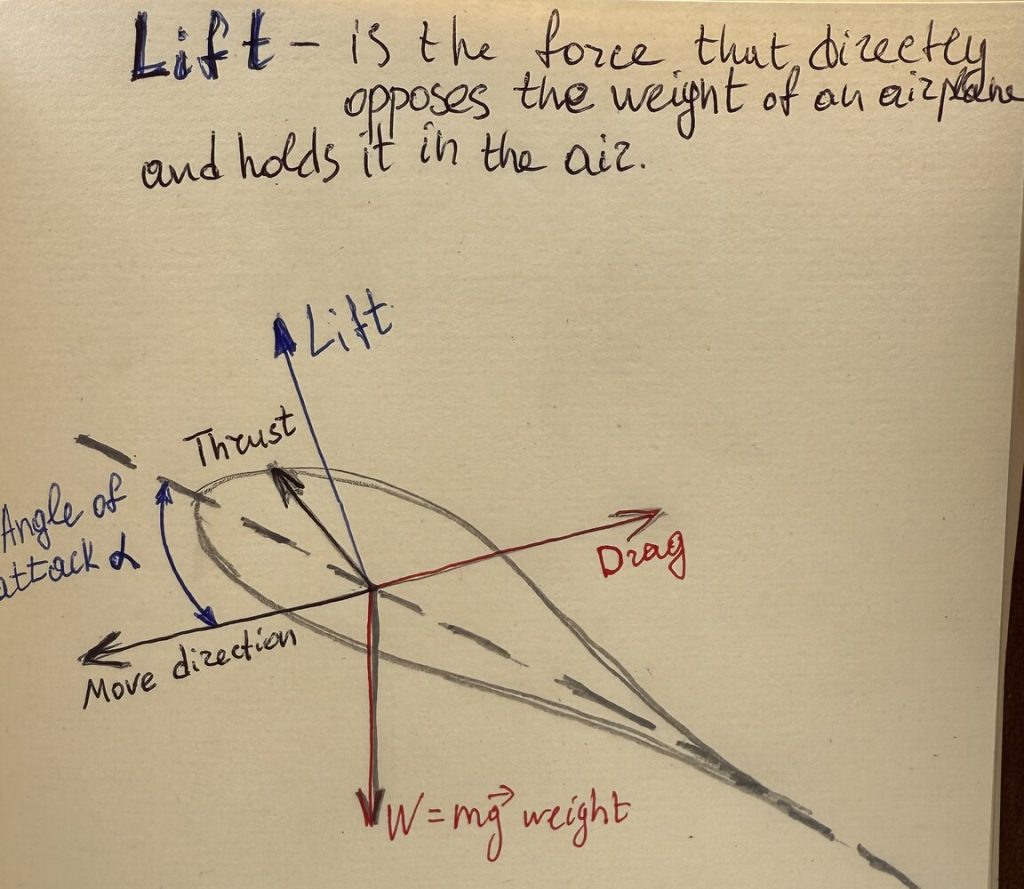 Lift - is the force that directly
opposes the weight of an airplane
and holds it in the air.
Lift
Thrust
Angle of
attack α
Drag
Move direction
W = mg⃗ weight